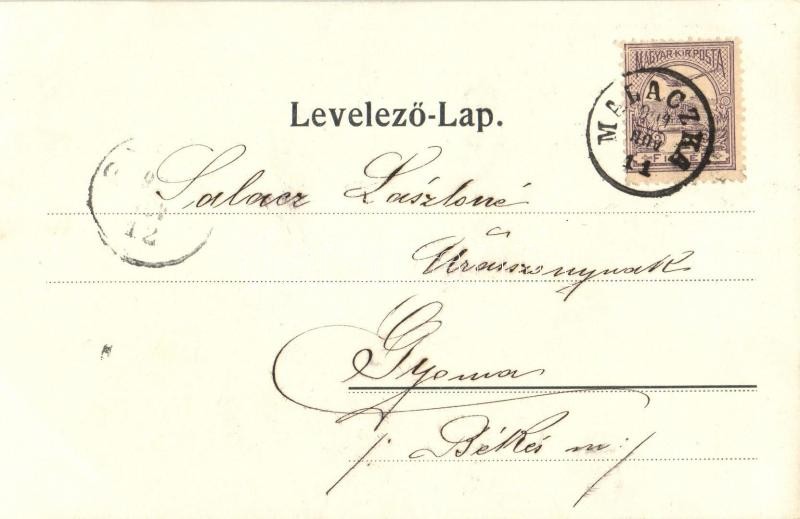 MAGYAR·KIR·POSTA
MALACZKA
NOV
11
FILLÉR
Levelező-Lap.
12
Salacz Lászlóné
Úrasszonynak
Gyoma
/: Békés m :/